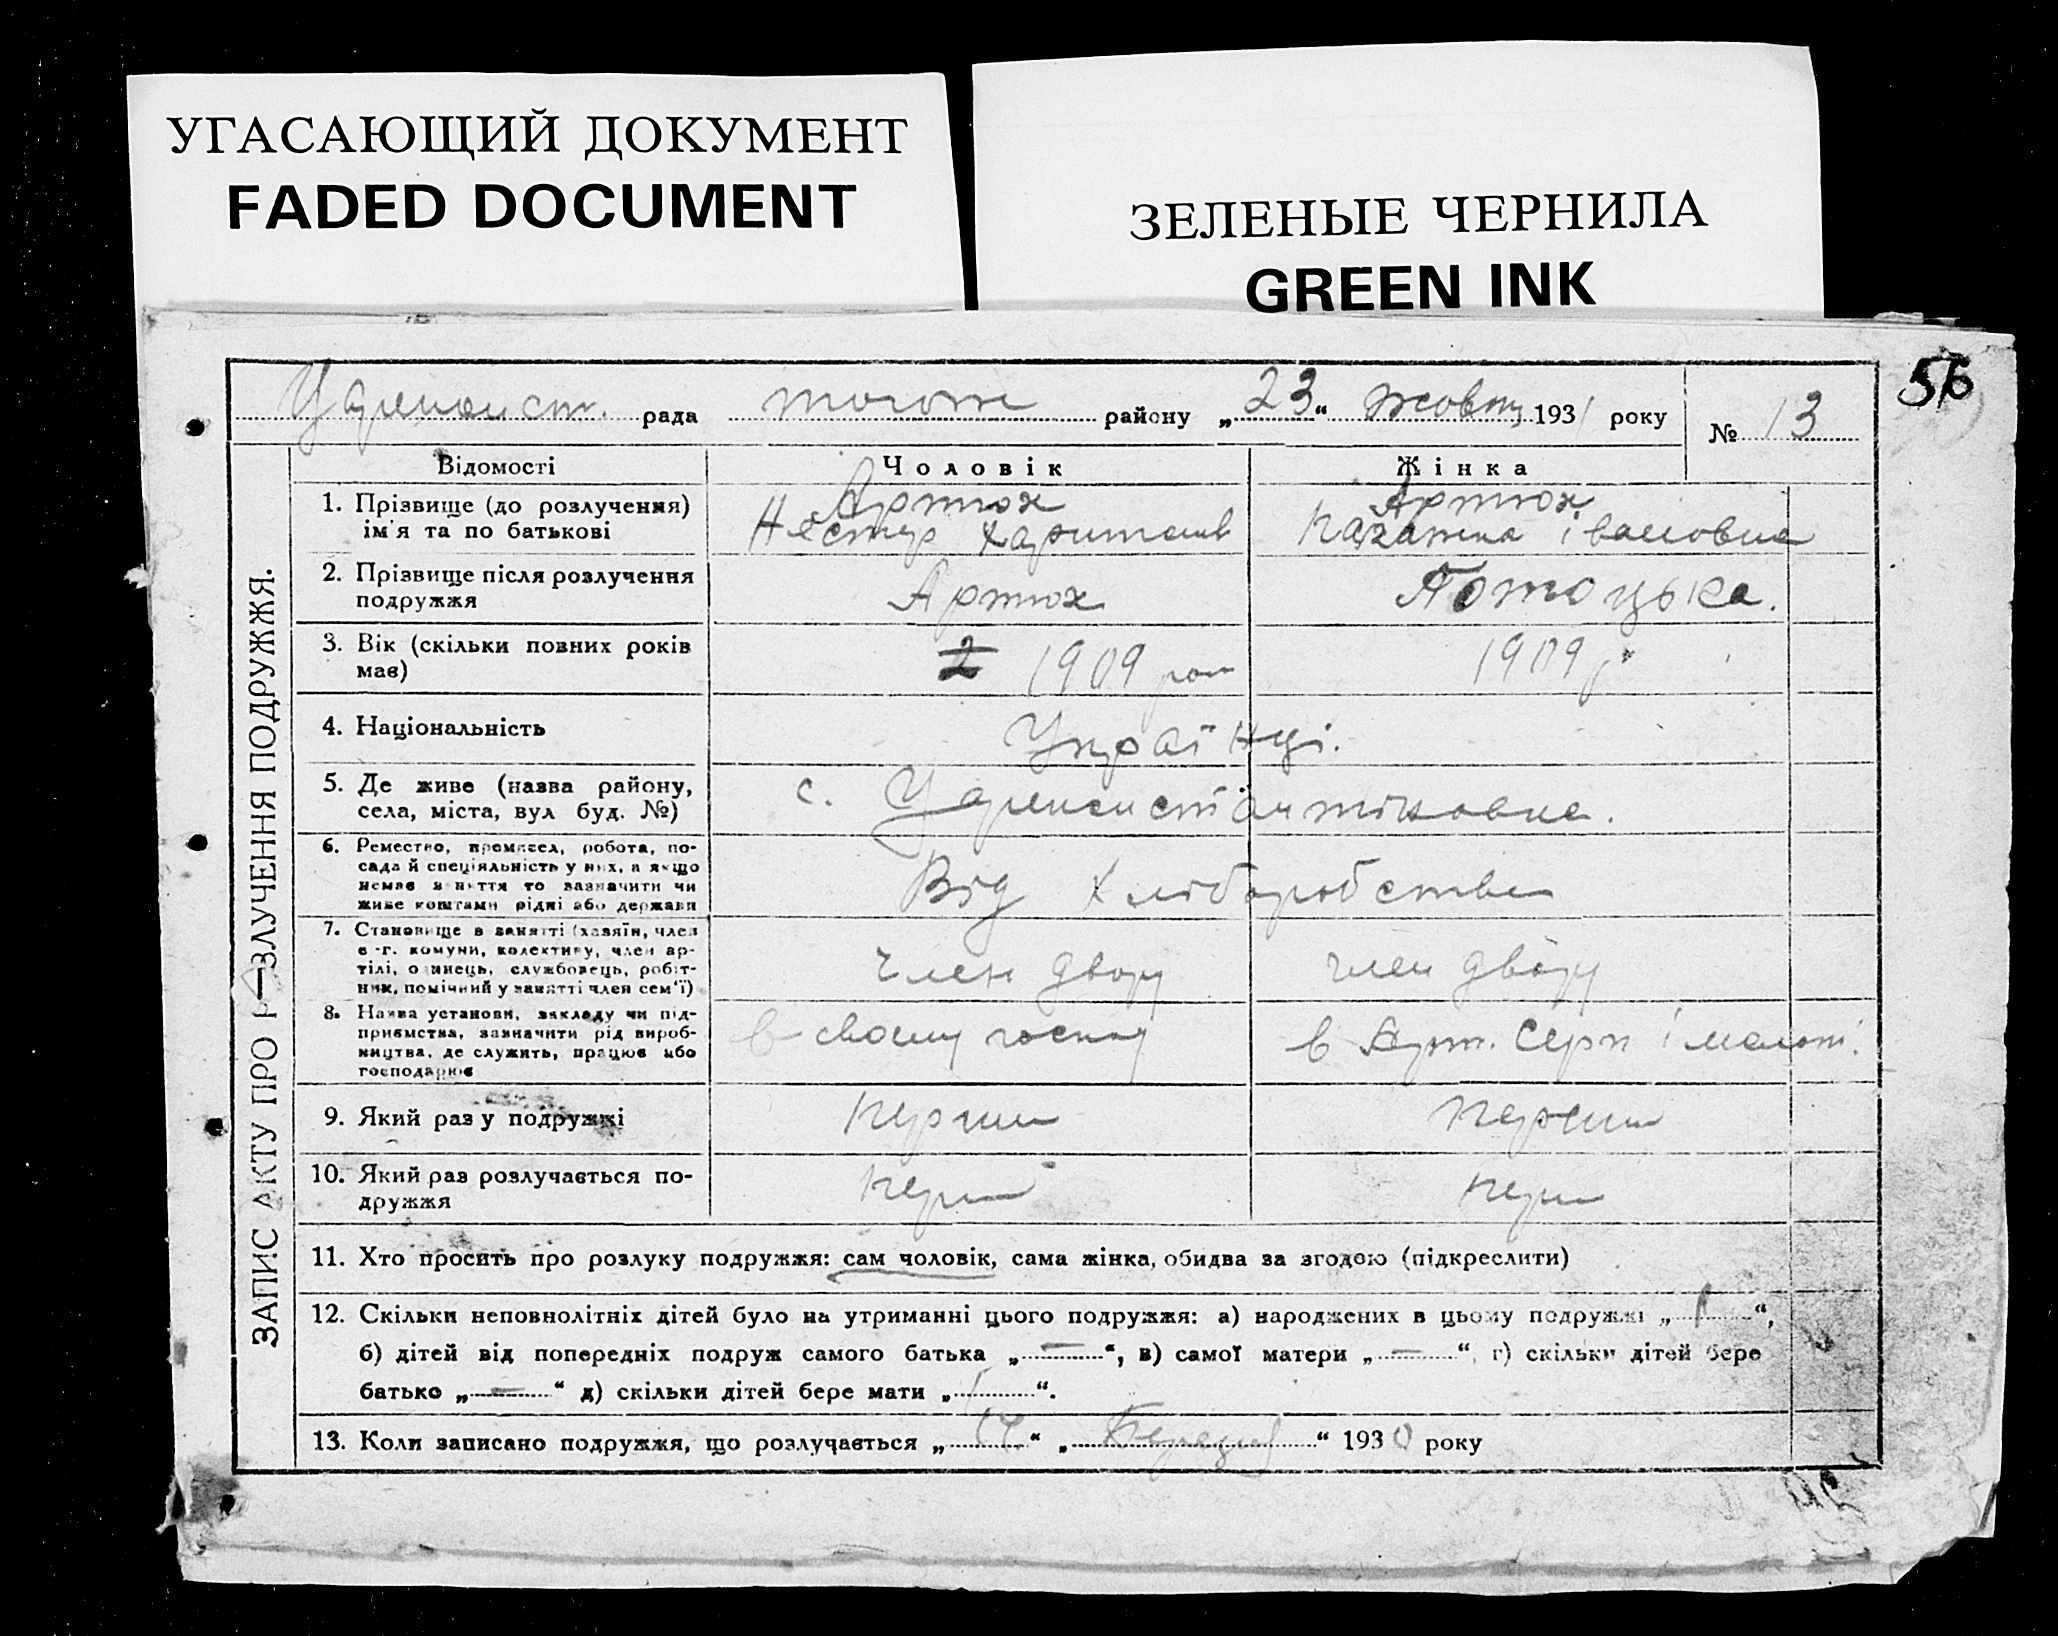 УГАСАЮЩИЙ ДОКУМЕНТ
FADED DOCUMENT
ЗЕЛЕНЫЕ ЧЕРНИЛА
GREEN INK
56
рада тогож району „23“ жовтн 1931 року № 13
ЗАПИС АКТУ ПРО РОЗЛУЧЕННЯ ПОДРУЖЖЯ.
Відомості Чоловік Жінка
1. Прізвище (до розлучення) Артюх Артюх
ім'я та по батькові Нестер Харитонів івановна
2. Прізвище після розлучення
подружжя Артюх Потоцька.
3. Вік (скільки повних років
має) 2 1909 рок 1909 р
4. Національність Українці.
5. Де живе (назва району,
села, міста, вул буд. №) с.
6. Ремество, промисел, робота, по-
сада й спеціяльність у них, а якщо
немає заняття то зазначити чи
живе коштами рідні або держави Від хліборобства
7. Становище в занятті (хазяїн, член
с.-г. комуни, колективу, член ар-
тілі, одинець, службовець, робіт-
ник, помічний у занятті член сем'ї) член двору член двору
8. Назва установи, закладу чи під-
приємства, зазначити рід вироб-
ництва, де служить, працює або
господарює в своєму господ в Арт. Серп і молот.
9. Який раз у подружжі Перший Перший
10. Який раз розлучається по-
дружжя Перш Перш
11. Хто просить про розлуку подружжя: сам чоловік, сама жінка, обидва за згодою (підкреслити)
12. Скільки неповнолітніх дітей було на утриманні цього подружжя: а) народжених в цьому подружжі „1“,
б) дітей від попередніх подруж самого батька „—“, в) самої матери „—“, г) скільки дітей бере
батько „—“ д) скільки дітей бере мати „1“.
13. Коли записано подружжя, що розлучається „14“ „Березня“ 1930 року